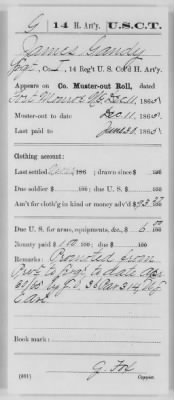 G 14 H. Art'y. U.S.C.T.
James Gandy
Sergt., Co. I, 14 Reg't U.S. Col'd H. Art'y.
Appears on Co. Muster-out Roll, dated
Fort Macon N.C. Dec 11, 1865
Muster-out to date Dec 11, 1865
Last paid to June 30, 1865
Clothing account:
Last settled 186 ; drawn since $ 100
Due soldier $ 100; due U.S. $ 100
Am't for cloth'g in kind or money adv'd $ 100
Due U.S. for arms, equipments, &c., $ 6 100
Bounty paid $ 100 100; due $ 100
Remarks: Promoted from
Pvt to Sergt to date
Book mark:
G. Fox
(861) Copyist.